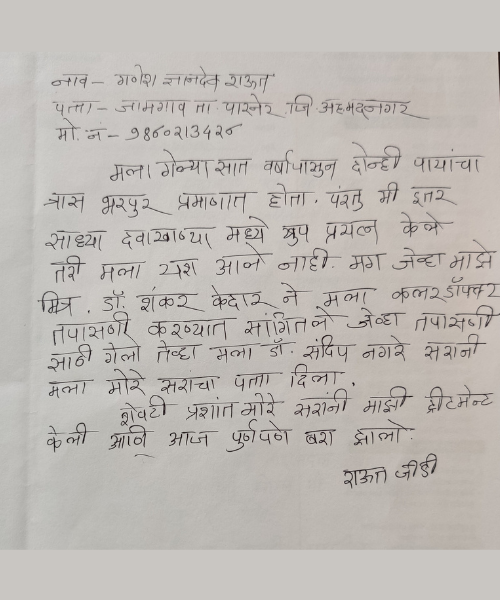 नाव - गणेश ज्ञानदेव राऊत
पत्ता - जामगाव ता पारनेर जि अहमदनगर
मो. नं - 9840213424
मला गेल्या सात वर्षापासुन दोन्ही पायांचा
त्रास भरपुर प्रमाणात होता. परंतु मी इतर
साध्या दवाखान्या मध्ये खुप प्रयत्न केले
तरी मला यश आले नाही. मग जेव्हा माझे
मित्र. डॉ. शंकर केदार ने मला कलर डॉप्लर
तपासणी करण्यात सांगितले जेव्हा तपासणी
साठी गेलो तेव्हा मला डॉ. संदिप नगरे सरांनी
मला मोरे सरांचा पत्ता दिला.
शेवटी प्रशांत मोरे सरांनी माझी ट्रीटमेन्ट
केली आणि आज पुर्णपणे बरा झालो.
राऊत जीडी